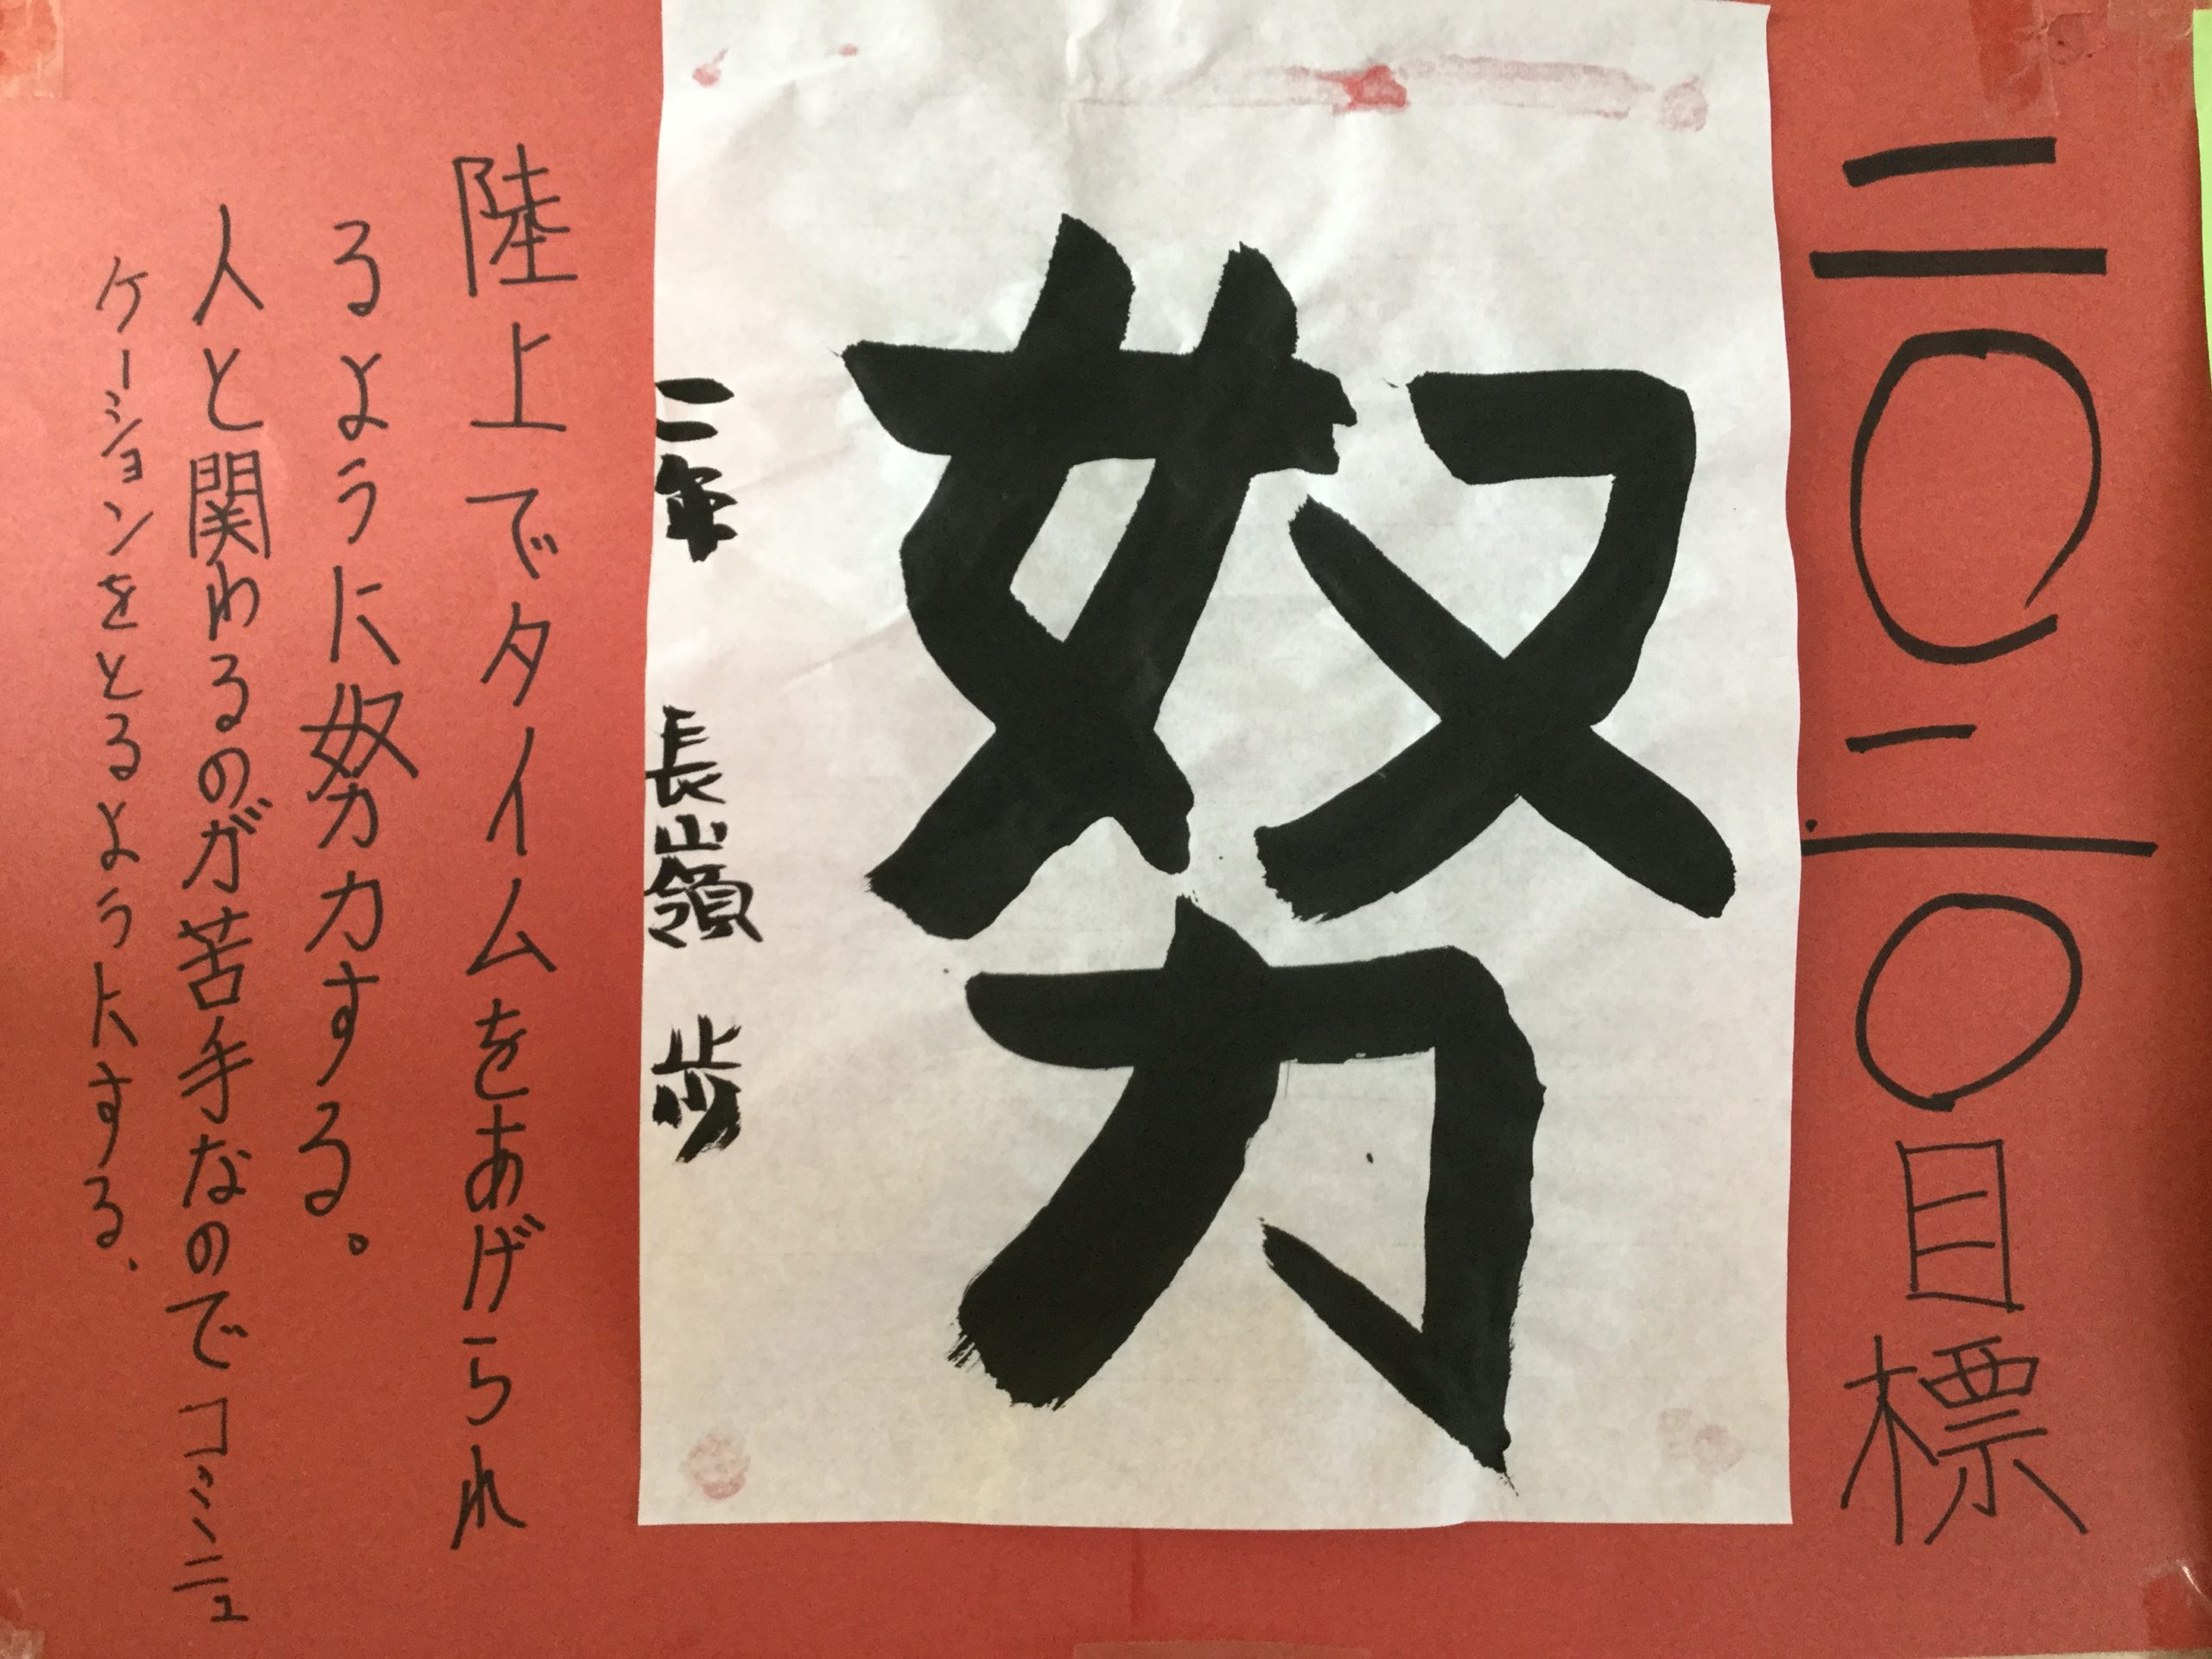 二〇二〇目標
努力
二年 長嶺 歩
陸上でタイムをあげられ
るように努力する。
人と関わるのが苦手なのでコミニュ
ケーションをとるようにする.